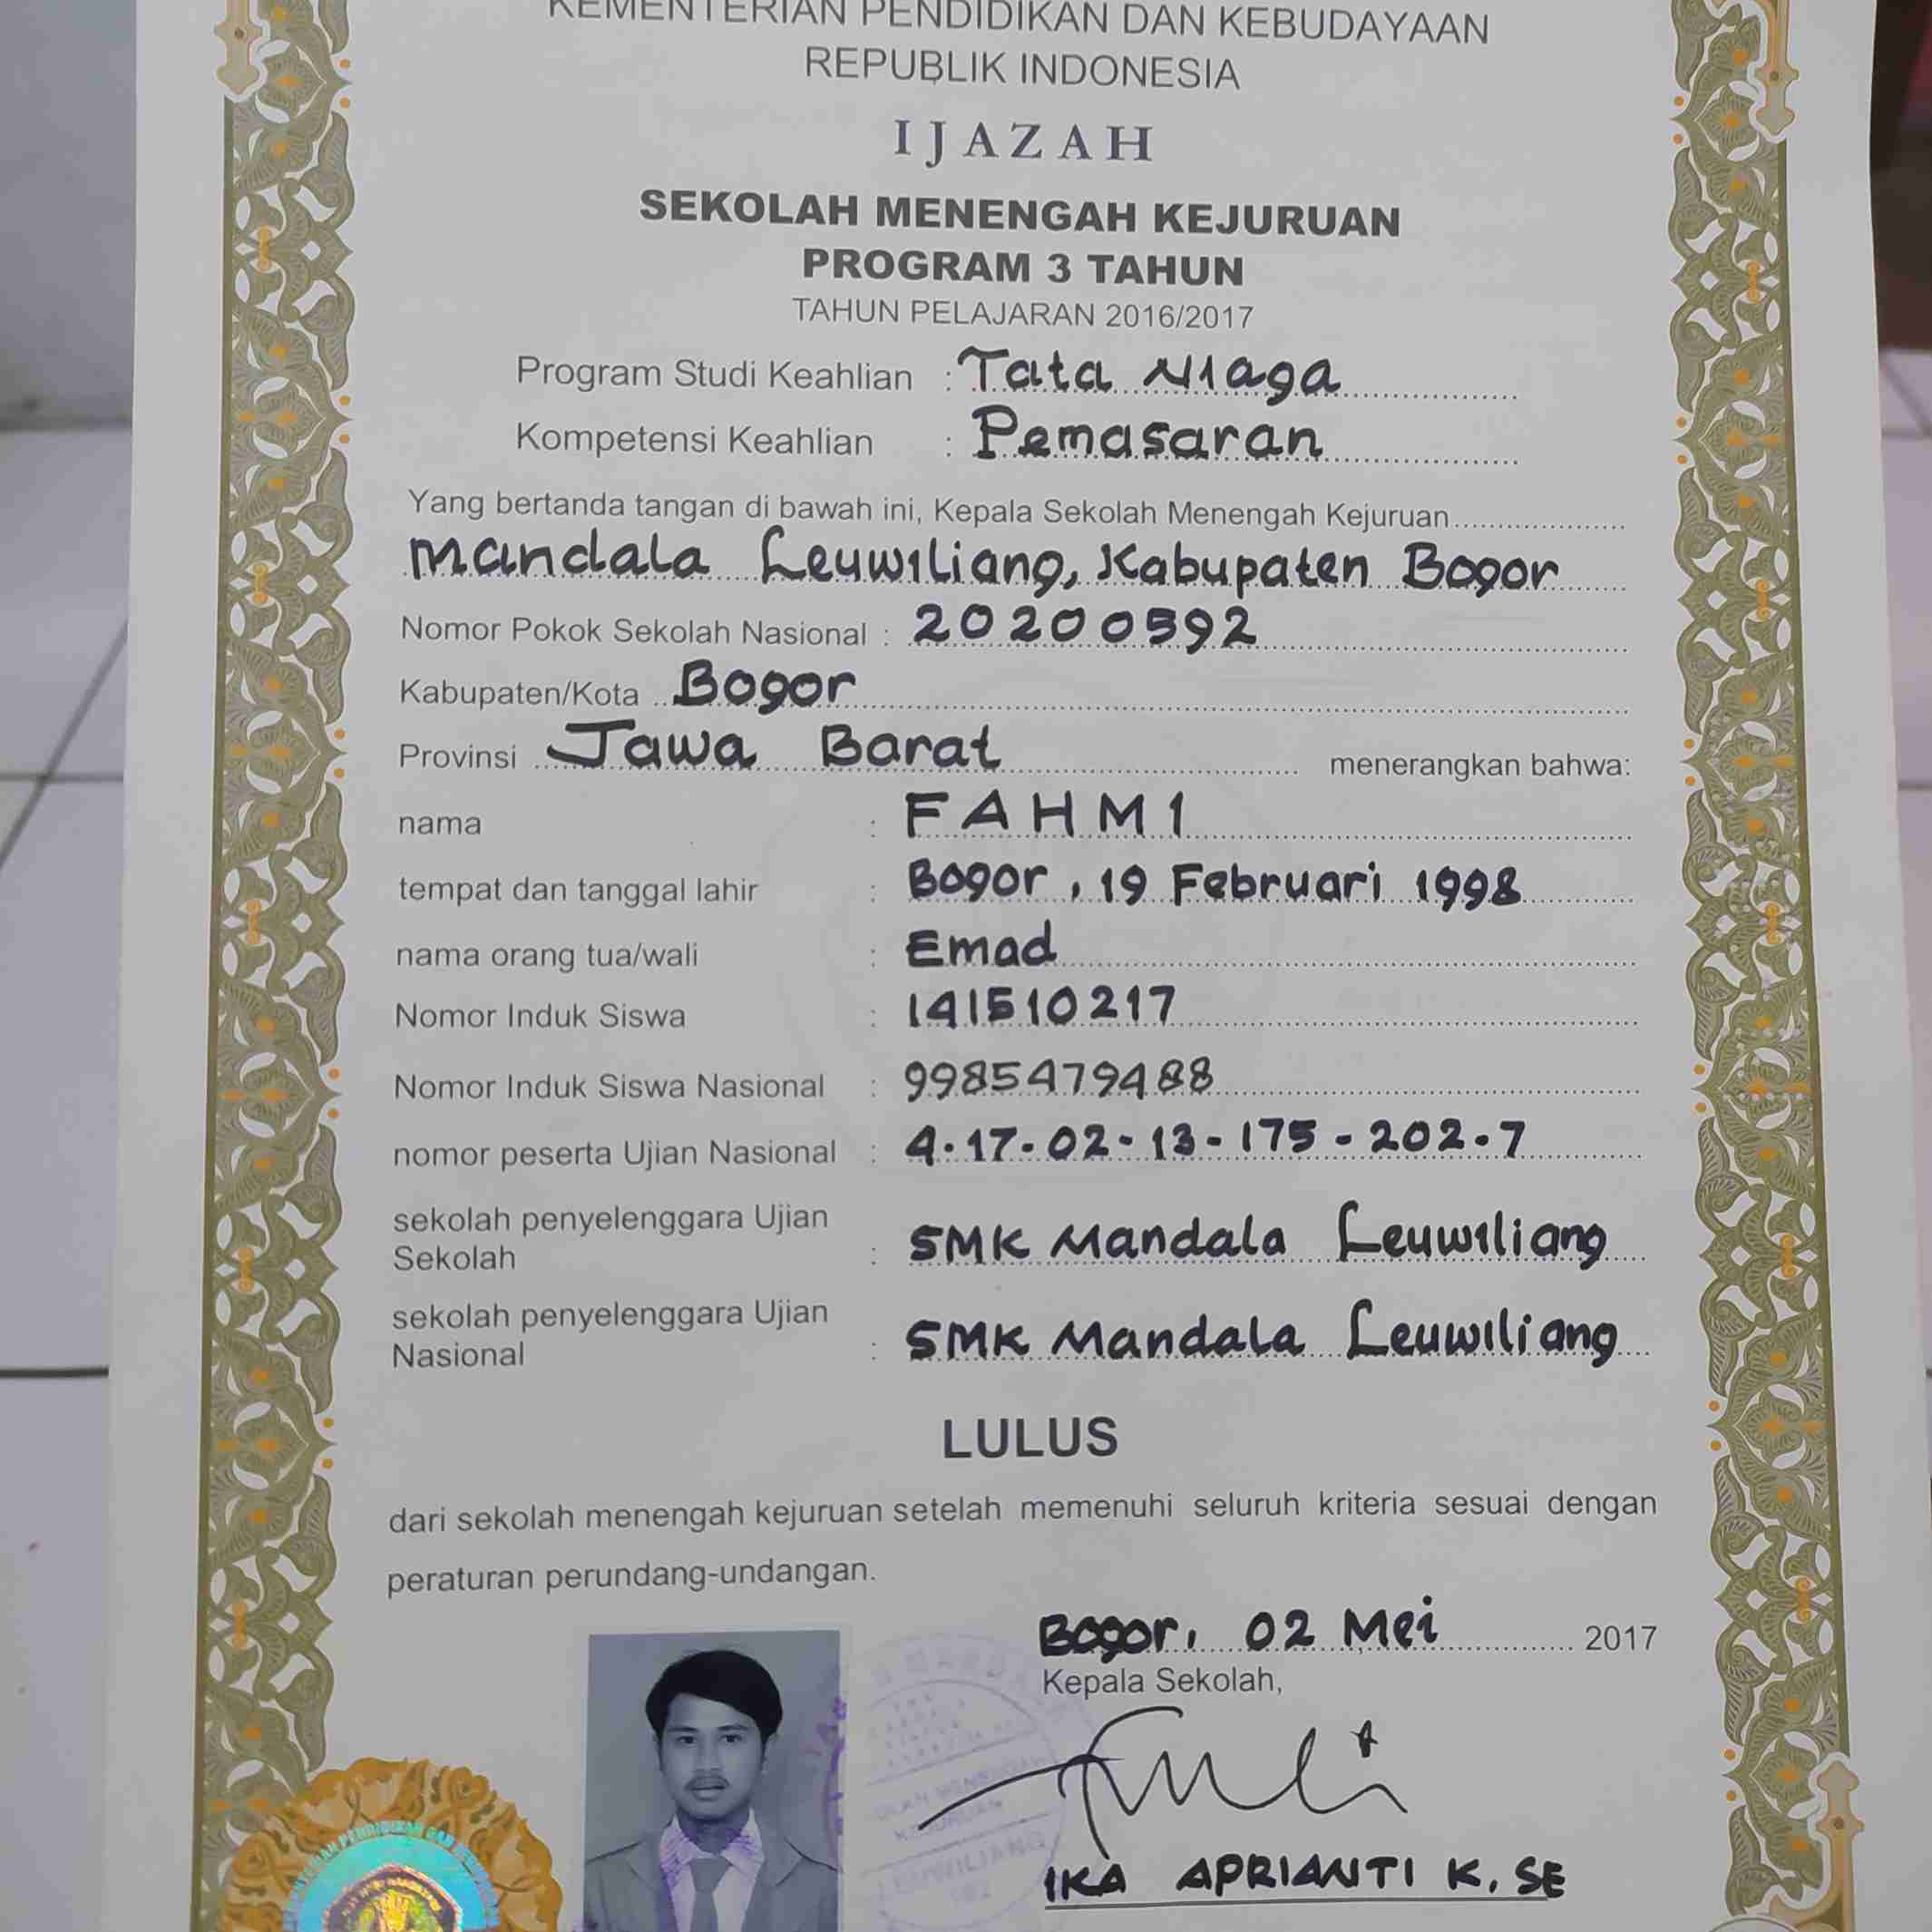 KEMENTERIAN PENDIDIKAN DAN KEBUDAYAAN
REPUBLIK INDONESIA
IJAZAH
SEKOLAH MENENGAH KEJURUAN
PROGRAM 3 TAHUN
TAHUN PELAJARAN 2016/2017
Program Studi Keahlian : Tata Niaga
Kompetensi Keahlian : Pemasaran
Yang bertanda tangan di bawah ini, Kepala Sekolah Menengah Kejuruan
Mandala Leuwiliang, Kabupaten Bogor
Nomor Pokok Sekolah Nasional : 20200592
Kabupaten/Kota Bogor
Provinsi Jawa Barat menerangkan bahwa:
nama : FAHMI
tempat dan tanggal lahir : Bogor, 19 Februari 1998
nama orang tua/wali : Emad
Nomor Induk Siswa : 141510217
Nomor Induk Siswa Nasional : 9985479488
nomor peserta Ujian Nasional : 4-17-02-13-175-202-7
sekolah penyelenggara Ujian
Sekolah : SMK Mandala Leuwiliang
sekolah penyelenggara Ujian
Nasional : SMK Mandala Leuwiliang
LULUS
dari sekolah menengah kejuruan setelah memenuhi seluruh kriteria sesuai dengan
peraturan perundang-undangan.
Bogor, 02 Mei 2017
Kepala Sekolah,
IKA APRIANTI K, SE